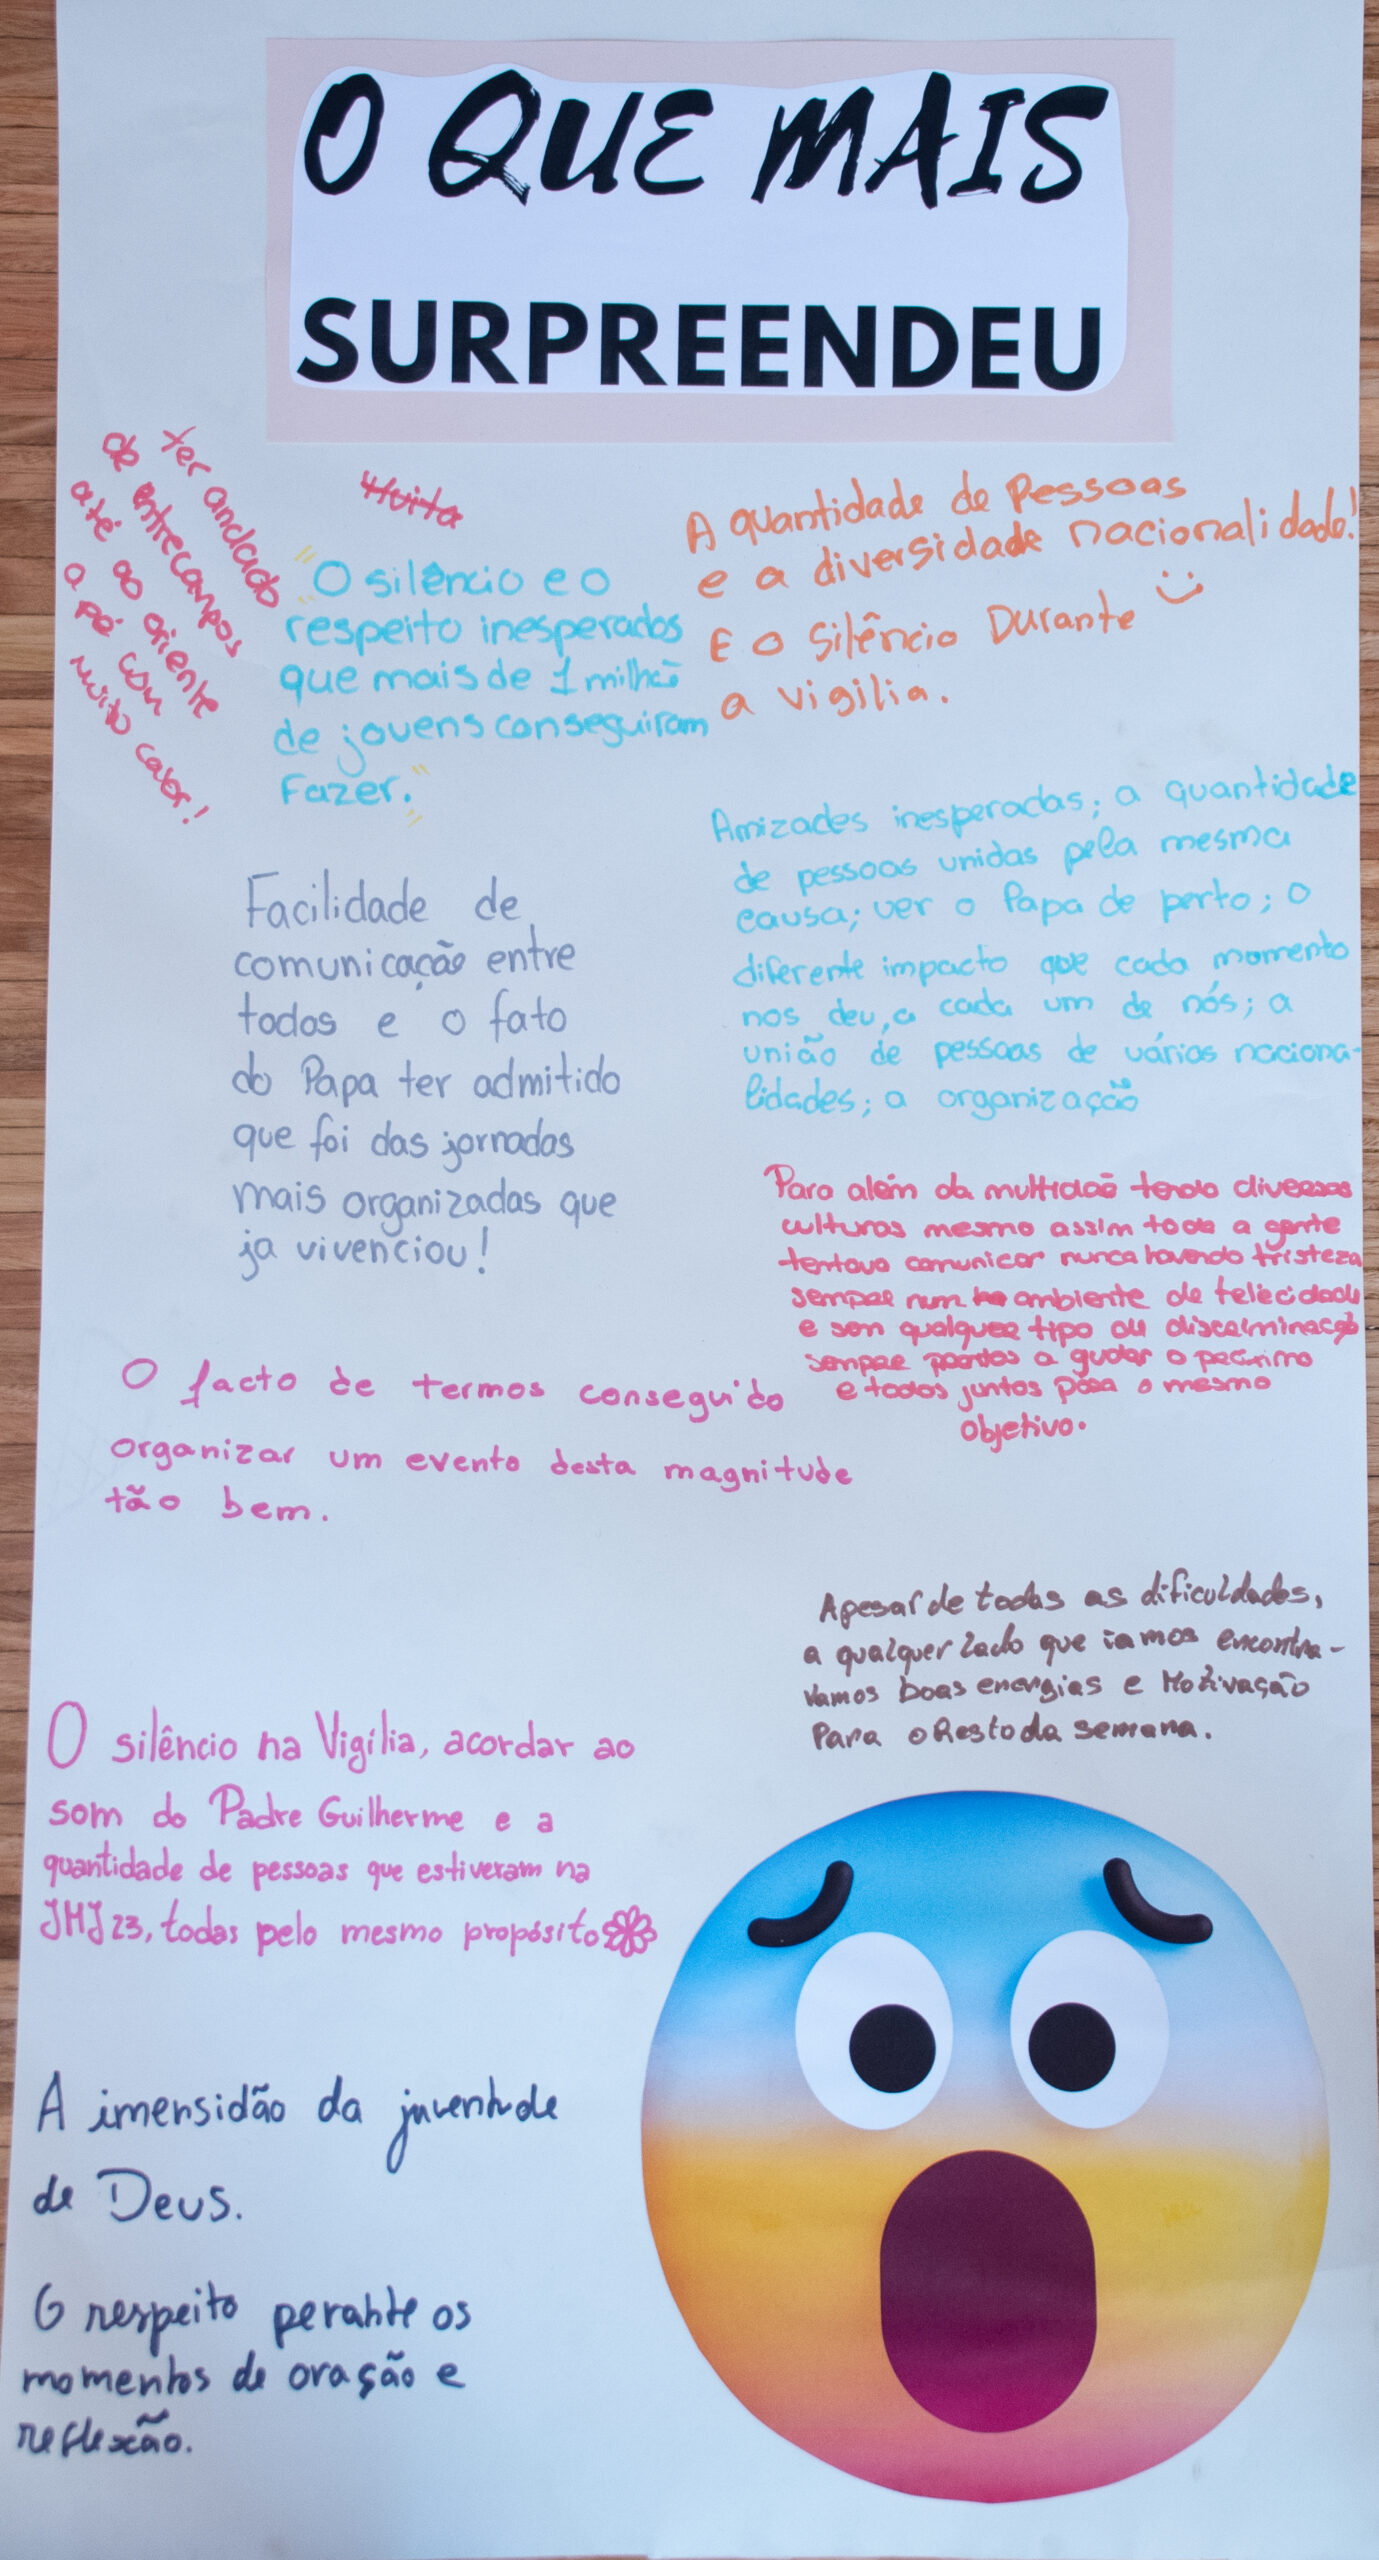 O QUE MAIS
SURPREENDEU
ter andado
de entrecampos
até ao oriente
a pé com
muito calor!
"O silêncio e o
respeito inesperados
que mais de 1 milhão
de jovens conseguiram
Fazer."
A quantidade de Pessoas
e a diversidade nacionalidade!
E o Silêncio Durante
a vigilia.
Facilidade de
comunicação entre
todos e o fato
do Papa ter admitido
que foi das jornadas
mais organizadas que
ja vivenciou!
Amizades inesperadas; a quantidade
de pessoas unidas pela mesma
causa; ver o Papa de perto; o
diferente impacto que cada momento
nos deu, a cada um de nós; a
união de pessoas de várias naciona-
lidades; a organização
Para além da multidão tendo diversas
culturas mesmo assim toda a gente
tentava comunicar nunca havendo tristeza
sempre num ambiente de felicidade
e sem qualquer tipo de discriminação
sempre prontos a ajudar o próximo
e todos juntos para o mesmo
objetivo.
O facto de termos conseguido
organizar um evento desta magnitude
tão bem.
Apesar de todas as dificuldades,
a qualquer lado que iamos encontra-
vamos boas energias e Motivação
Para o Resto da semana.
O silêncio na Vigília, acordar ao
som do Padre Guilherme e a
quantidade de pessoas que estiveram na
JMJ 23, todas pelo mesmo propósito
A imensidão da juventude
de Deus.
O respeito perante os
momentos de oração e
reflexão.